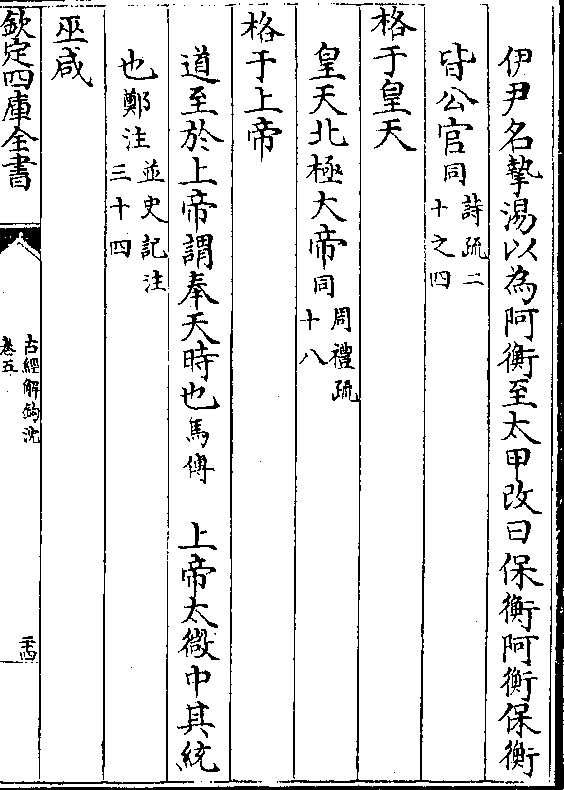 伊尹名摯湯以為阿衡至太甲改曰保衡阿衡保衡
皆公官同詩疏二十之四
格于皇天
皇天北極大帝同周禮疏十八
格于上帝
道至於上帝謂奉天時也馬傅 上帝太微中其統
也鄭注並史記注三十四
巫咸
欽定四庫全書
古經解鉤沈
卷五
二十四